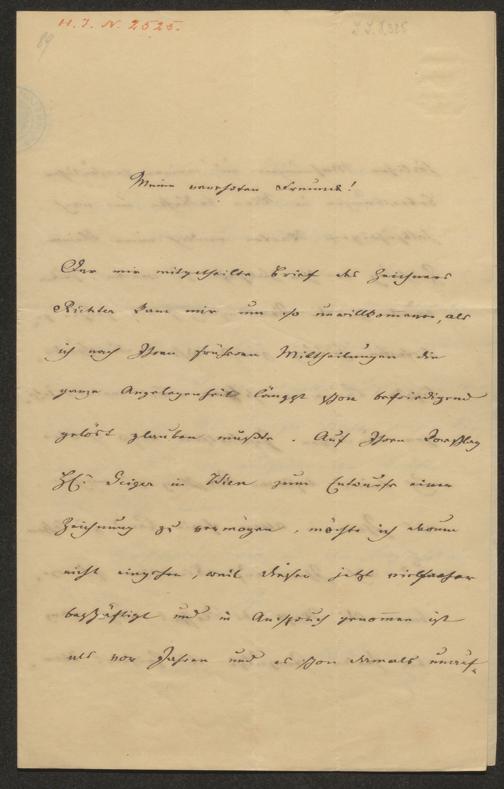 H. I. N. 2525.
89
Mein verehrter Freund!
Der mir mitgetheilte Brief des Zeichners
Richter kam mir um so unwillkommener, als
ich nach Ihren früheren Mittheilungen die
ganze Angelegenheit längst schon befriedigend
gelöst glauben mußte. Auf Ihren Vorschlag
H. Geiger in Wien zum Entwurfe einer
Zeichnung zu vermögen, möchte ich darum
nicht eingehen, weil dieser jetzt vielfacher
beschäftigt und in Anspruch genommen ist
als vor Jahren und es schon damals